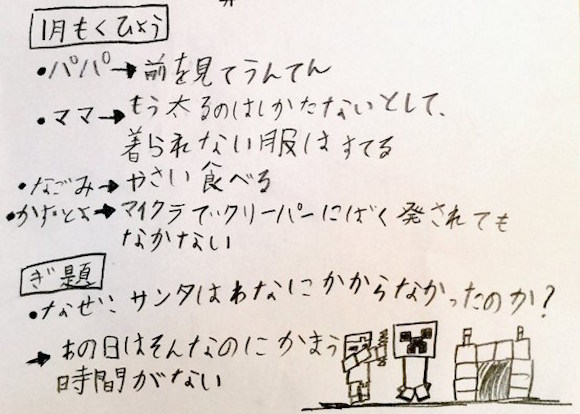 1月もくひょう
•パパ→前を見てうんてん
•ママ→もう太るのはしかたないとして、
着られない服はすてる
•なごみ→やさい食べる
•かずとよ→マイクラでクリーパーにばく発されても
なかない
ぎ題
•なぜ: サンタはわなにかからなかったのか?
→あの日はそんなのにかまう
時間がない